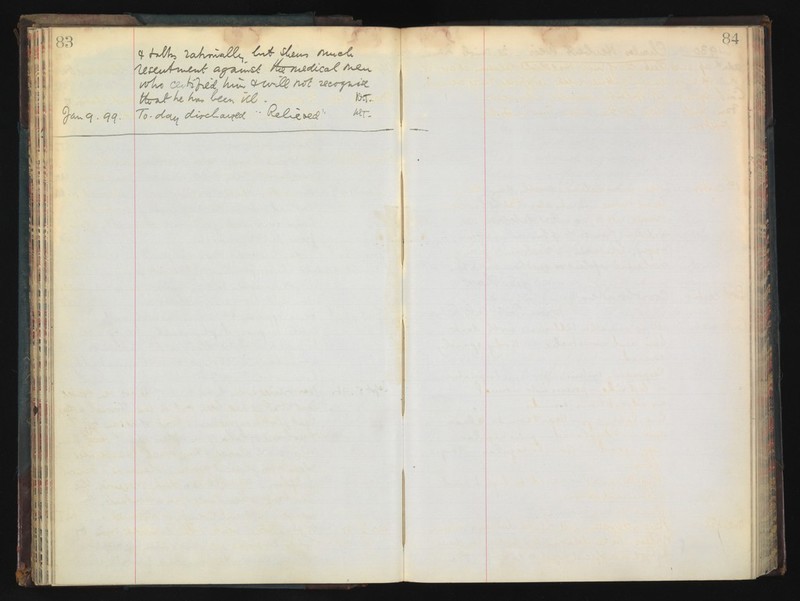 83
& talks rationally, but shews much
resentment against the medical men
who certified him & will not recognise
that he has been ill.
Jan 9. 99. To-day discharged "Relieved"
84